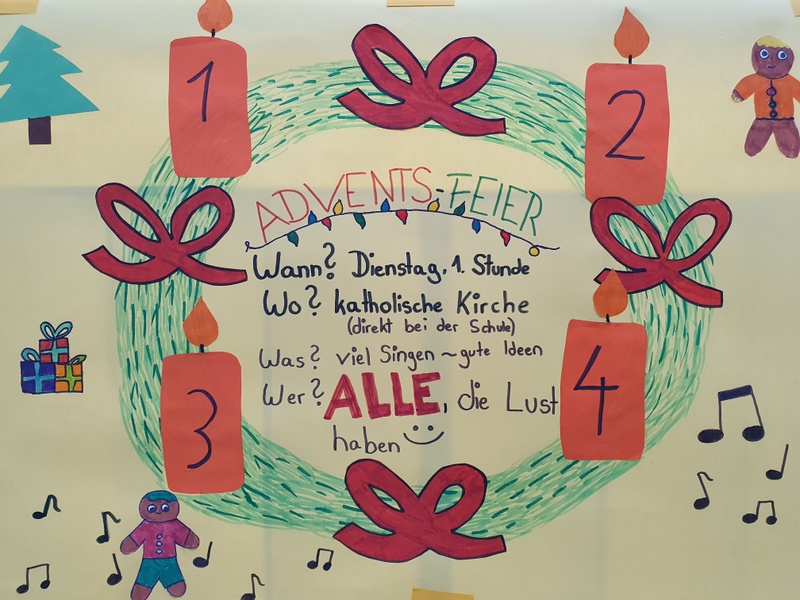 1
2
ADVENTS-FEIER
Wann? Dienstag, 1. Stunde
Wo? katholische Kirche
(direkt bei der Schule)
Was? viel Singen ~ gute Ideen
Wer? ALLE, die Lust
haben
3
4